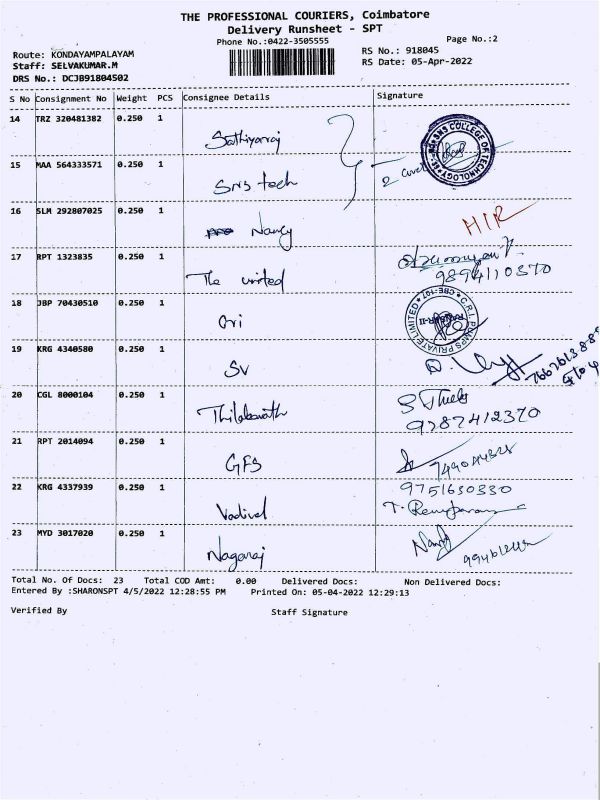 THE PROFESSIONAL COURIERS, Coimbatore
Delivery Runsheet - SPT
Phone No.:0422-3505555
Page No.:2
Route: KONDAYAMPALAYAM
Staff: SELVAKUMAR.M
DRS No.: DCJB91804502
RS No.: 918045
RS Date: 05-Apr-2022
S No Consignment No Weight PCS Consignee Details Signature
14 TRZ 320481382 0.250 1
Sathiyaraj
15 MAA 564333571 0.250 1
SNS tech
SNS COLLEGE OF TECHNOLOGY
16 SLM 292807025 0.250 1
Nancy
17 RPT 1323835 0.250 1
The united
9894110370
18 JBP 70430510 0.250 1
Ori
C.R.I. PUMPS PRIVATE LIMITED
19 KRG 4340580 0.250 1
SV
20 CGL 8000104 0.250 1
9787412370
21 RPT 2014094 0.250 1
GFS
22 KRG 4337939 0.250 1
Vadivel
9751630330
23 MYD 3017020 0.250 1
Nagaraj
Total No. Of Docs: 23 Total COD Amt: 0.00 Delivered Docs: Non Delivered Docs:
Entered By :SHARONSPT 4/5/2022 12:28:55 PM Printed On: 05-04-2022 12:29:13
Verified By Staff Signature